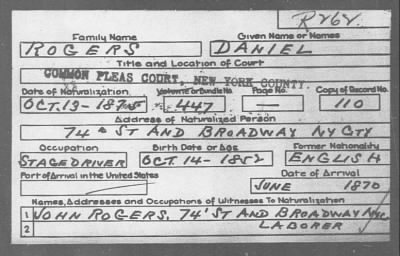 R262.
Family Name Given Name or Names
ROGERS DANIEL
Title and Location of Court
COMMON PLEAS COURT, NEW YORK COUNTY.
Date of Naturalization Volume or Bundle No. Page No. Copy of Record No.
OCT. 13- 1875 447 — 110
Address of Naturalized Person
74th ST AND BROADWAY NY CTY
Occupation Birth Date or Age Former Nationality
STAGE DRIVER OCT. 14- 1852 ENGLISH
Port of Arrival in the United States Date of Arrival
JUNE 1870
Names, Addresses and Occupations of Witnesses To Naturalization
1 JOHN ROGERS, 74' ST AND BROADWAY NYC
2 LABORER